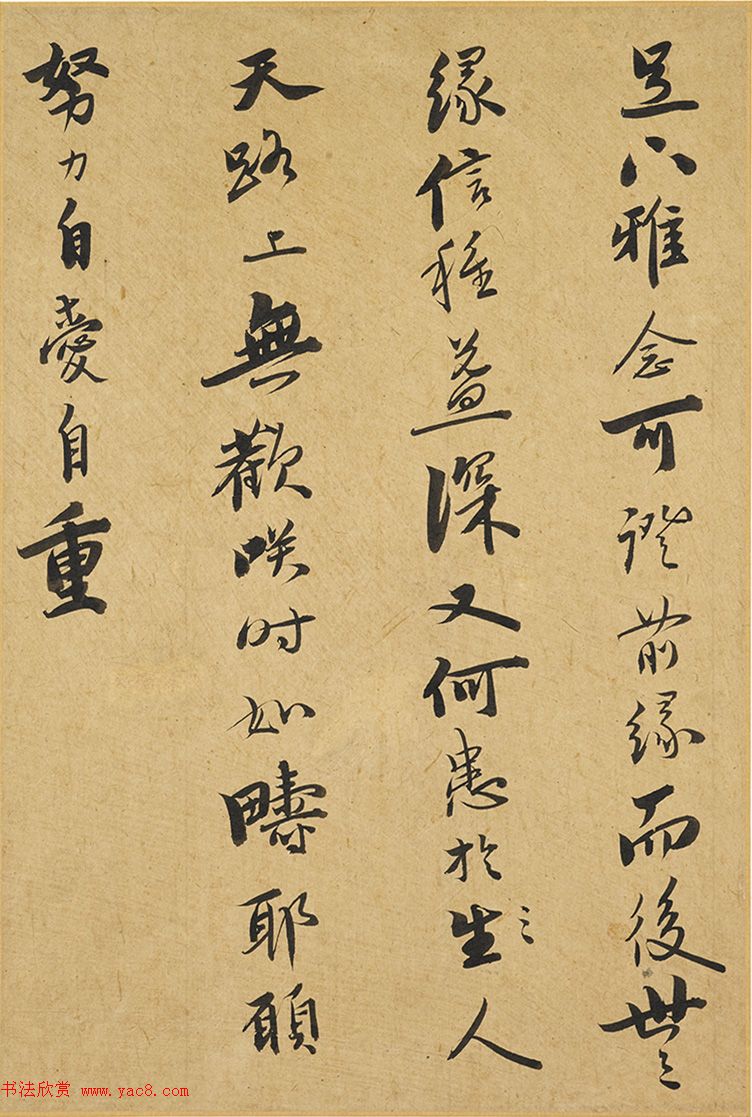 足下雅念可證前緣而後世之
緣信種益深又何患於生生人
天路上無歡咲时如疇耶願
努力自愛自重
书法欣赏 www.yac8.com